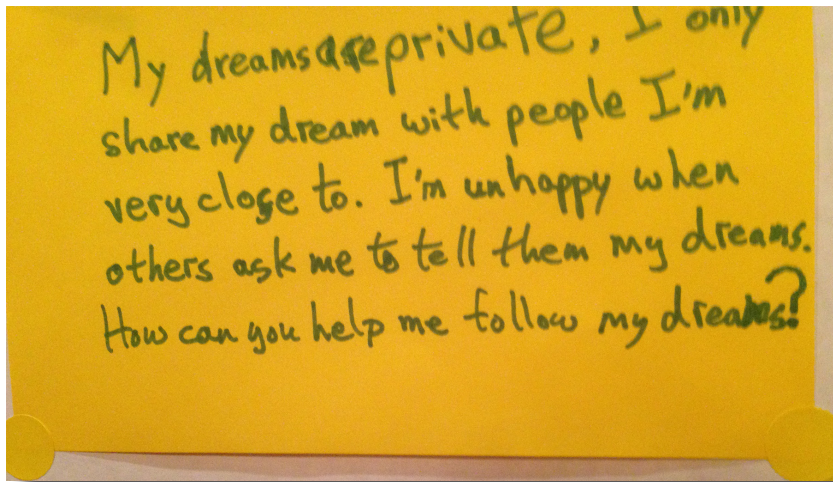 My dreams are private, I only
share my dream with people I'm
very close to. I'm unhappy when
others ask me to tell them my dreams.
How can you help me follow my dreams?